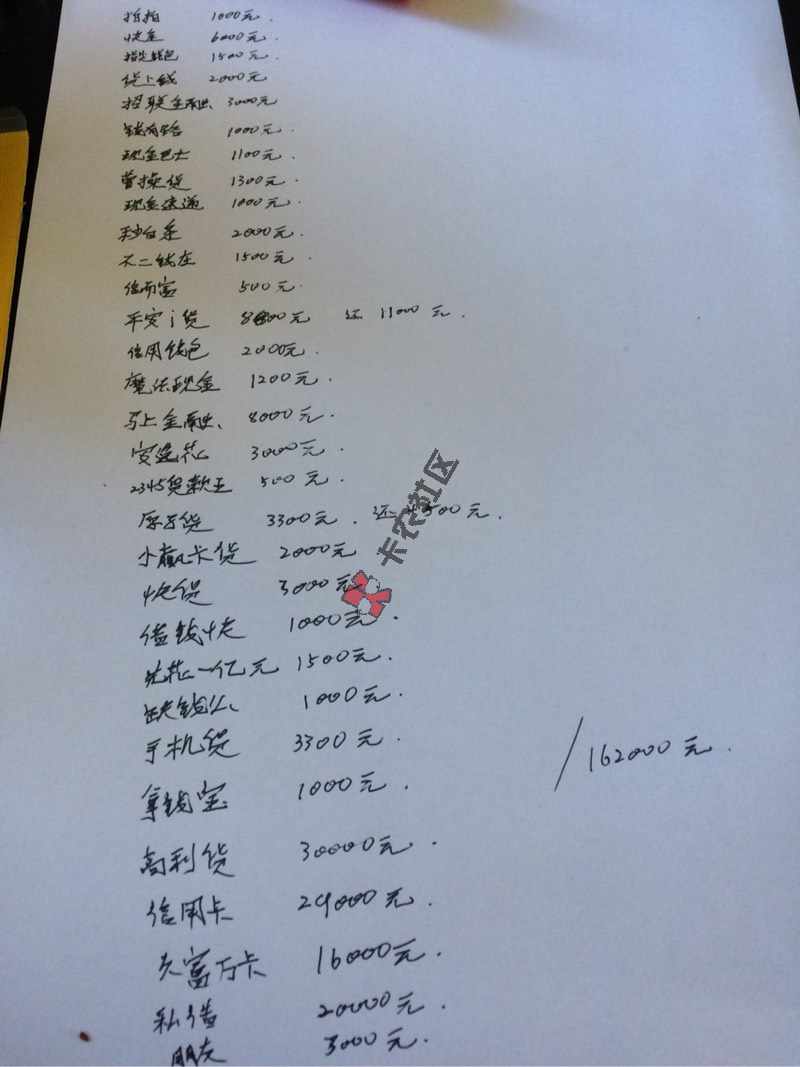 拍拍 1000元.
快金 6000元.
指尖钱包 1500元.
贷上钱 2000元
招联金融 3000元
钱有路 1000元.
现金巴士 1100元.
曹操贷 1300元.
现金速递 1000元.
秒白条 2000元.
不二钱庄 1500元.
信而富 500元.
平安i贷 8800元 还 11000元.
信用钱包 2000元.
魔法现金 1200元.
马上金融 8000元.
安逸花 3000元.
2345贷款王 500元.
原子贷 3300元. 还4500元.
小赢卡贷 2000元
快贷 3000元
借钱快 1000元.
先花一亿元 1500元.
缺钱么 1000元.
手机贷 3300元.
162000元.
拿钱宝 1000元.
高利贷 30000元.
信用卡 29000元.
夫富万卡 16000元.
私借 20000元.
朋友 3000元.
卡农社区